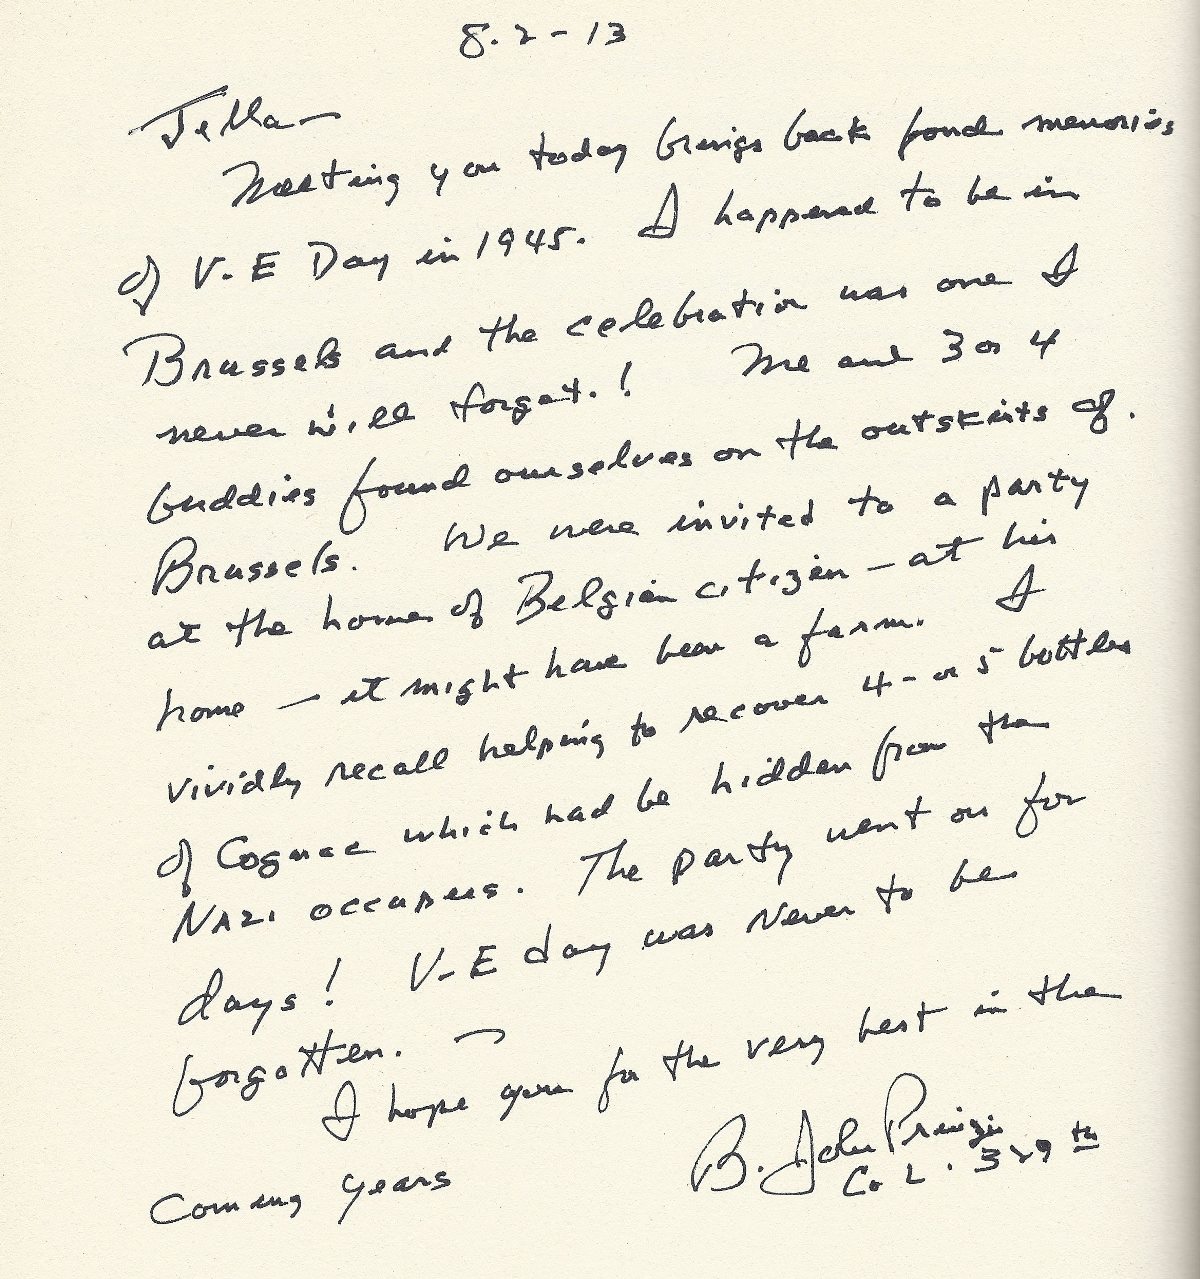 8.2-13
Jella-
Meeting you today brings back fond memories
of V-E Day in 1945. I happened to be in
Brussels and the celebration was one I
never will forget.! Me and 3 or 4
buddies found ourselves on the outskirts of.
Brussels. We were invited to a party
at the home of Belgian citizen - at his
home - it might have been a farm. I
vividly recall helping to recover 4- or 5 bottles
of Cognac which had be hidden from the
NAZI occupiers. The party went on for
days! V-E day was Never to be
forgotten.
I hope you for the very best in the
Coming years
B. John
Co L. 329th